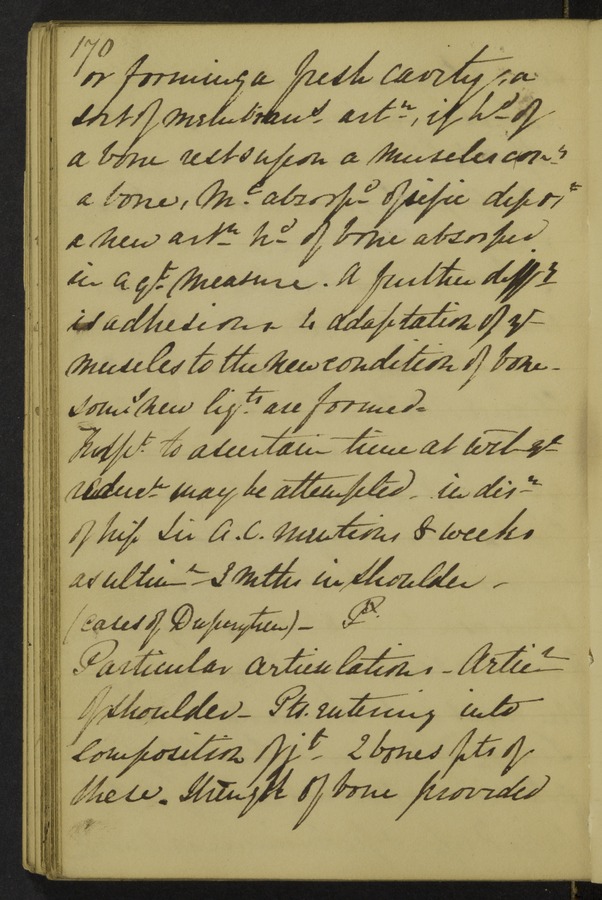 170
or forming a fresh cavity, a
sort of membrans artn, if hd of
a bone rests upon a muscle
a bone, Mc absorpd ossific deposn
a new artn hd of bone absorbed
in a gt measure. A further diffy
is adhesions & adaptation of ye
muscles to the new condition of bone -
some new ligts are formed -
Impt to ascertain time at wch ye
reduct may be attempted - in disn
of hip Sir A.C. mentions 8 weeks
as ultim - 3 mths in shoulder -
(cases of Dupuytren) -
Particular articulations - Articn
of shoulder - Pts. entering into
composition of jt - 2 bones pts of
these. Strength of bone provided